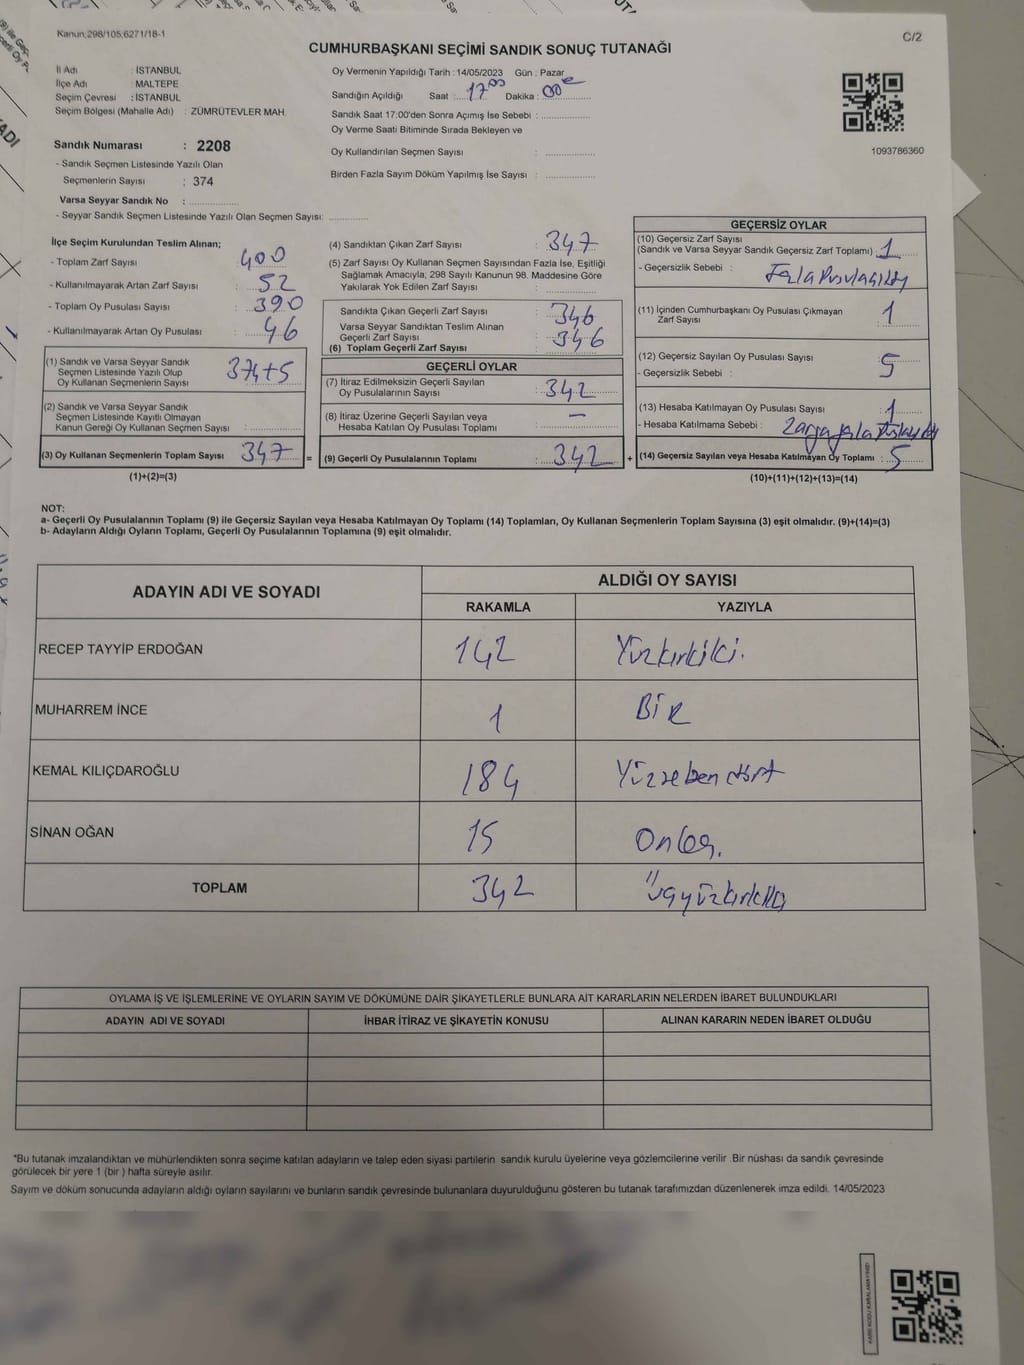 Kanun;298/105;6271/18-1
C/2
CUMHURBAŞKANI SEÇİMİ SANDIK SONUÇ TUTANAĞI
İl Adı : İSTANBUL
İlçe Adı : MALTEPE
Seçim Çevresi : İSTANBUL
Seçim Bölgesi (Mahalle Adı) : ZÜMRÜTEVLER MAH.
Oy Vermenin Yapıldığı Tarih : 14/05/2023 Gün : Pazar
Sandığın Açıldığı Saat : 17 00 Dakika : 00
Sandık Saat 17:00'den Sonra Açımış İse Sebebi :
Oy Verme Saati Bitiminde Sırada Bekleyen ve
Oy Kullandırılan Seçmen Sayısı :
Birden Fazla Sayım Döküm Yapılmış İse Sayısı :
1093786360
Sandık Numarası : 2208
- Sandık Seçmen Listesinde Yazılı Olan
Seçmenlerin Sayısı : 374
Varsa Seyyar Sandık No :
- Seyyar Sandık Seçmen Listesinde Yazılı Olan Seçmen Sayısı:
İlçe Seçim Kurulundan Teslim Alınan;
- Toplam Zarf Sayısı : 400
- Kullanılmayarak Artan Zarf Sayısı : 52
- Toplam Oy Pusulası Sayısı : 390
- Kullanılmayarak Artan Oy Pusulası : 46
(1) Sandık ve Varsa Seyyar Sandık
Seçmen Listesinde Yazılı Olup
Oy Kullanan Seçmenlerin Sayısı : 374+5
(2) Sandık ve Varsa Seyyar Sandık
Seçmen Listesinde Kayıtlı Olmayan
Kanun Gereği Oy Kullanan Seçmen Sayısı :
(3) Oy Kullanan Seçmenlerin Toplam Sayısı : 347 =
(1)+(2)=(3)
(4) Sandıktan Çıkan Zarf Sayısı : 347
(5) Zarf Sayısı Oy Kullanan Seçmen Sayısından Fazla İse, Eşitliği
Sağlamak Amacıyla; 298 Sayılı Kanunun 98. Maddesine Göre
Yakılarak Yok Edilen Zarf Sayısı :
Sandıkta Çıkan Geçerli Zarf Sayısı : 346
Varsa Seyyar Sandıktan Teslim Alınan
Geçerli Zarf Sayısı :
(6) Toplam Geçerli Zarf Sayısı : 346
GEÇERLİ OYLAR
(7) İtiraz Edilmeksizin Geçerli Sayılan
Oy Pusulalarının Sayısı : 342
(8) İtiraz Üzerine Geçerli Sayılan veya
Hesaba Katılan Oy Pusulası Toplamı : —
(9) Geçerli Oy Pusulalarının Toplamı : 342 +
GEÇERSİZ OYLAR
(10) Geçersiz Zarf Sayısı
(Sandık ve Varsa Seyyar Sandık Geçersiz Zarf Toplamı) : 1
- Geçersizlik Sebebi :
(11) İçinden Cumhurbaşkanı Oy Pusulası Çıkmayan
Zarf Sayısı : 1
(12) Geçersiz Sayılan Oy Pusulası Sayısı : 5
- Geçersizlik Sebebi :
(13) Hesaba Katılmayan Oy Pusulası Sayısı : 1
- Hesaba Katılmama Sebebi :
(14) Geçersiz Sayılan veya Hesaba Katılmayan Oy Toplamı : 5
(10)+(11)+(12)+(13)=(14)
NOT:
a- Geçerli Oy Pusulalarının Toplamı (9) ile Geçersiz Sayılan veya Hesaba Katılmayan Oy Toplamı (14) Toplamları, Oy Kullanan Seçmenlerin Toplam Sayısına (3) eşit olmalıdır. (9)+(14)=(3)
b- Adayların Aldığı Oyların Toplamı, Geçerli Oy Pusulalarının Toplamına (9) eşit olmalıdır.
ADAYIN ADI VE SOYADI ALDIĞI OY SAYISI
RAKAMLA YAZIYLA
RECEP TAYYİP ERDOĞAN 142 Yüzkırkiki.
MUHARREM İNCE 1 BİR
KEMAL KILIÇDAROĞLU 184
SİNAN OĞAN 15 Onbeş.
TOPLAM 342
OYLAMA İŞ VE İŞLEMLERİNE VE OYLARIN SAYIM VE DÖKÜMÜNE DAİR ŞİKAYETLERLE BUNLARA AİT KARARLARIN NELERDEN İBARET BULUNDUKLARI
ADAYIN ADI VE SOYADI İHBAR İTİRAZ VE ŞİKAYETİN KONUSU ALINAN KARARIN NEDEN İBARET OLDUĞU
*Bu tutanak imzalandıktan ve mühürlendikten sonra seçime katılan adayların ve talep eden siyasi partilerin sandık kurulu üyelerine veya gözlemcilerine verilir .Bir nüshası da sandık çevresinde
görülecek bir yere 1 (bir ) hafta süreyle asılır.
Sayım ve döküm sonucunda adayların aldığı oyların sayılarını ve bunların sandık çevresinde bulunanlara duyurulduğunu gösteren bu tutanak tarafımızdan düzenlenerek imza edildi. 14/05/2023